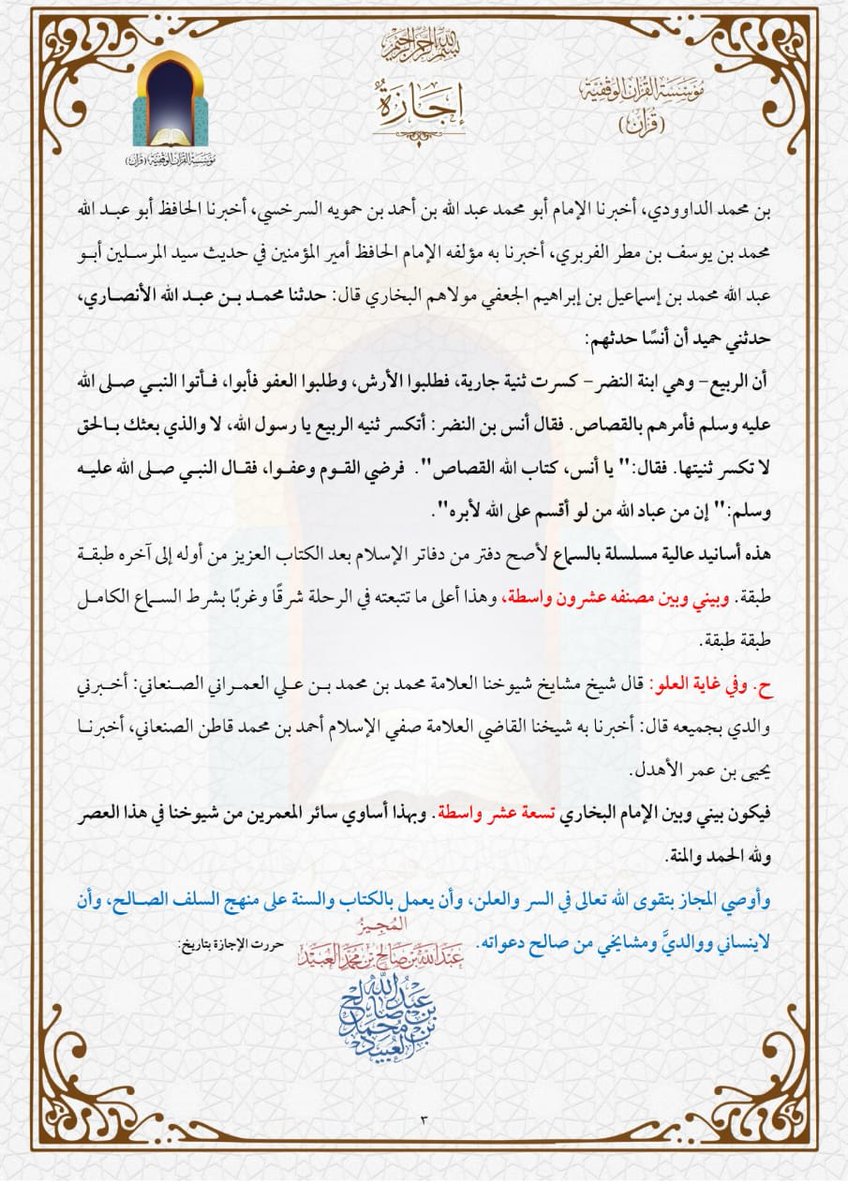 بسم الله الرحمن الرحيم
إِجَازَةٌ
مُؤَسَّسَةُ القُرْآنِ الوَقْفِيَّة
(قُرْآن)
مُؤَسَّسَةُ القُرْآنِ الوَقْفِيَّة (قُرْآن)
بن محمد الداوودي، أخبرنا الإمام أبو محمد عبد الله بن أحمد بن حمويه السرخسي، أخبرنا الحافظ أبو عبـد الله
محمد بن يوسف بن مطر الفربري، أخبرنا به مؤلفه الإمام الحافظ أمير المؤمنين في حديث سيد المرسـلين أبـو
عبد الله محمد بن إسماعيل بن إبراهيم الجعفي مولاهم البخاري قال: حدثنا محمـد بـن عبـد الله الأنصـاري،
حدثني حميد أن أنسًا حدثهم:
أن الربيع– وهي ابنة النضر– كسرت ثنية جارية، فطلبوا الأرش، وطلبوا العفو فأبوا، فـأتوا النبـي صـلى الله
عليه وسلم فأمرهم بالقصاص. فقال أنس بن النضر: أتكسر ثنيه الربيع يا رسول الله، لا والذي بعثك بـالحق
لا تكسر ثنيتها. فقال:" يا أنس، كتاب الله القصاص". فرضي القـوم وعفـوا، فقـال النبـي صـلى الله عليـه
وسلم:" إن من عباد الله من لو أقسم على الله لأبره".
هذه أسانيد عالية مسلسلة بالسماع لأصح دفتر من دفاتر الإسلام بعد الكتاب العزيز من أوله إلى آخره طبقـة
طبقة. وبيني وبين مصنفه عشرون واسطة، وهذا أعلى ما تتبعته في الرحلة شرقًا وغربًا بشرط السـماع الكامـل
طبقة طبقة.
ح. وفي غاية العلو: قال شيخ مشايخ شيوخنا العلامة محمد بن محمد بـن عـلي العمـراني الصـنعاني: أخـبرني
والدي بجميعه قال: أخبرنا به شيخنا القاضي العلامة صفي الإسلام أحمد بن محمد قاطن الصنعاني، أخبرنـا
يحيى بن عمر الأهدل.
فيكون بيني وبين الإمام البخاري تسعة عشر واسطة. وبهذا أساوي سائر المعمرين من شيوخنا في هذا العصر
ولله الحمد والمنة.
وأوصي المجاز بتقوى الله تعالى في السر والعلن، وأن يعمل بالكتاب والسنة على منهج السلف الصـالح، وأن
لاينساني ووالديَّ ومشايخي من صالح دعواته.
المُجِيزُ
عَبْدُ اللهِ بْنُ صَالِحِ بْنِ مُحَمَّدٍ العُبَيْد
حررت الإجازة بتاريخ:
عبد الله بن صالح بن محمد العبيد
٣